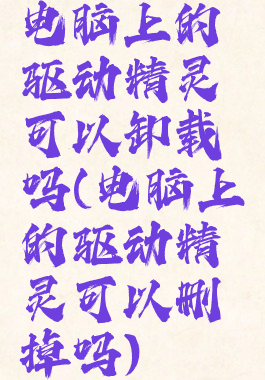 电脑上的
驱动精灵
可以卸载
吗(电脑上
的驱动精
灵可以删
掉吗)